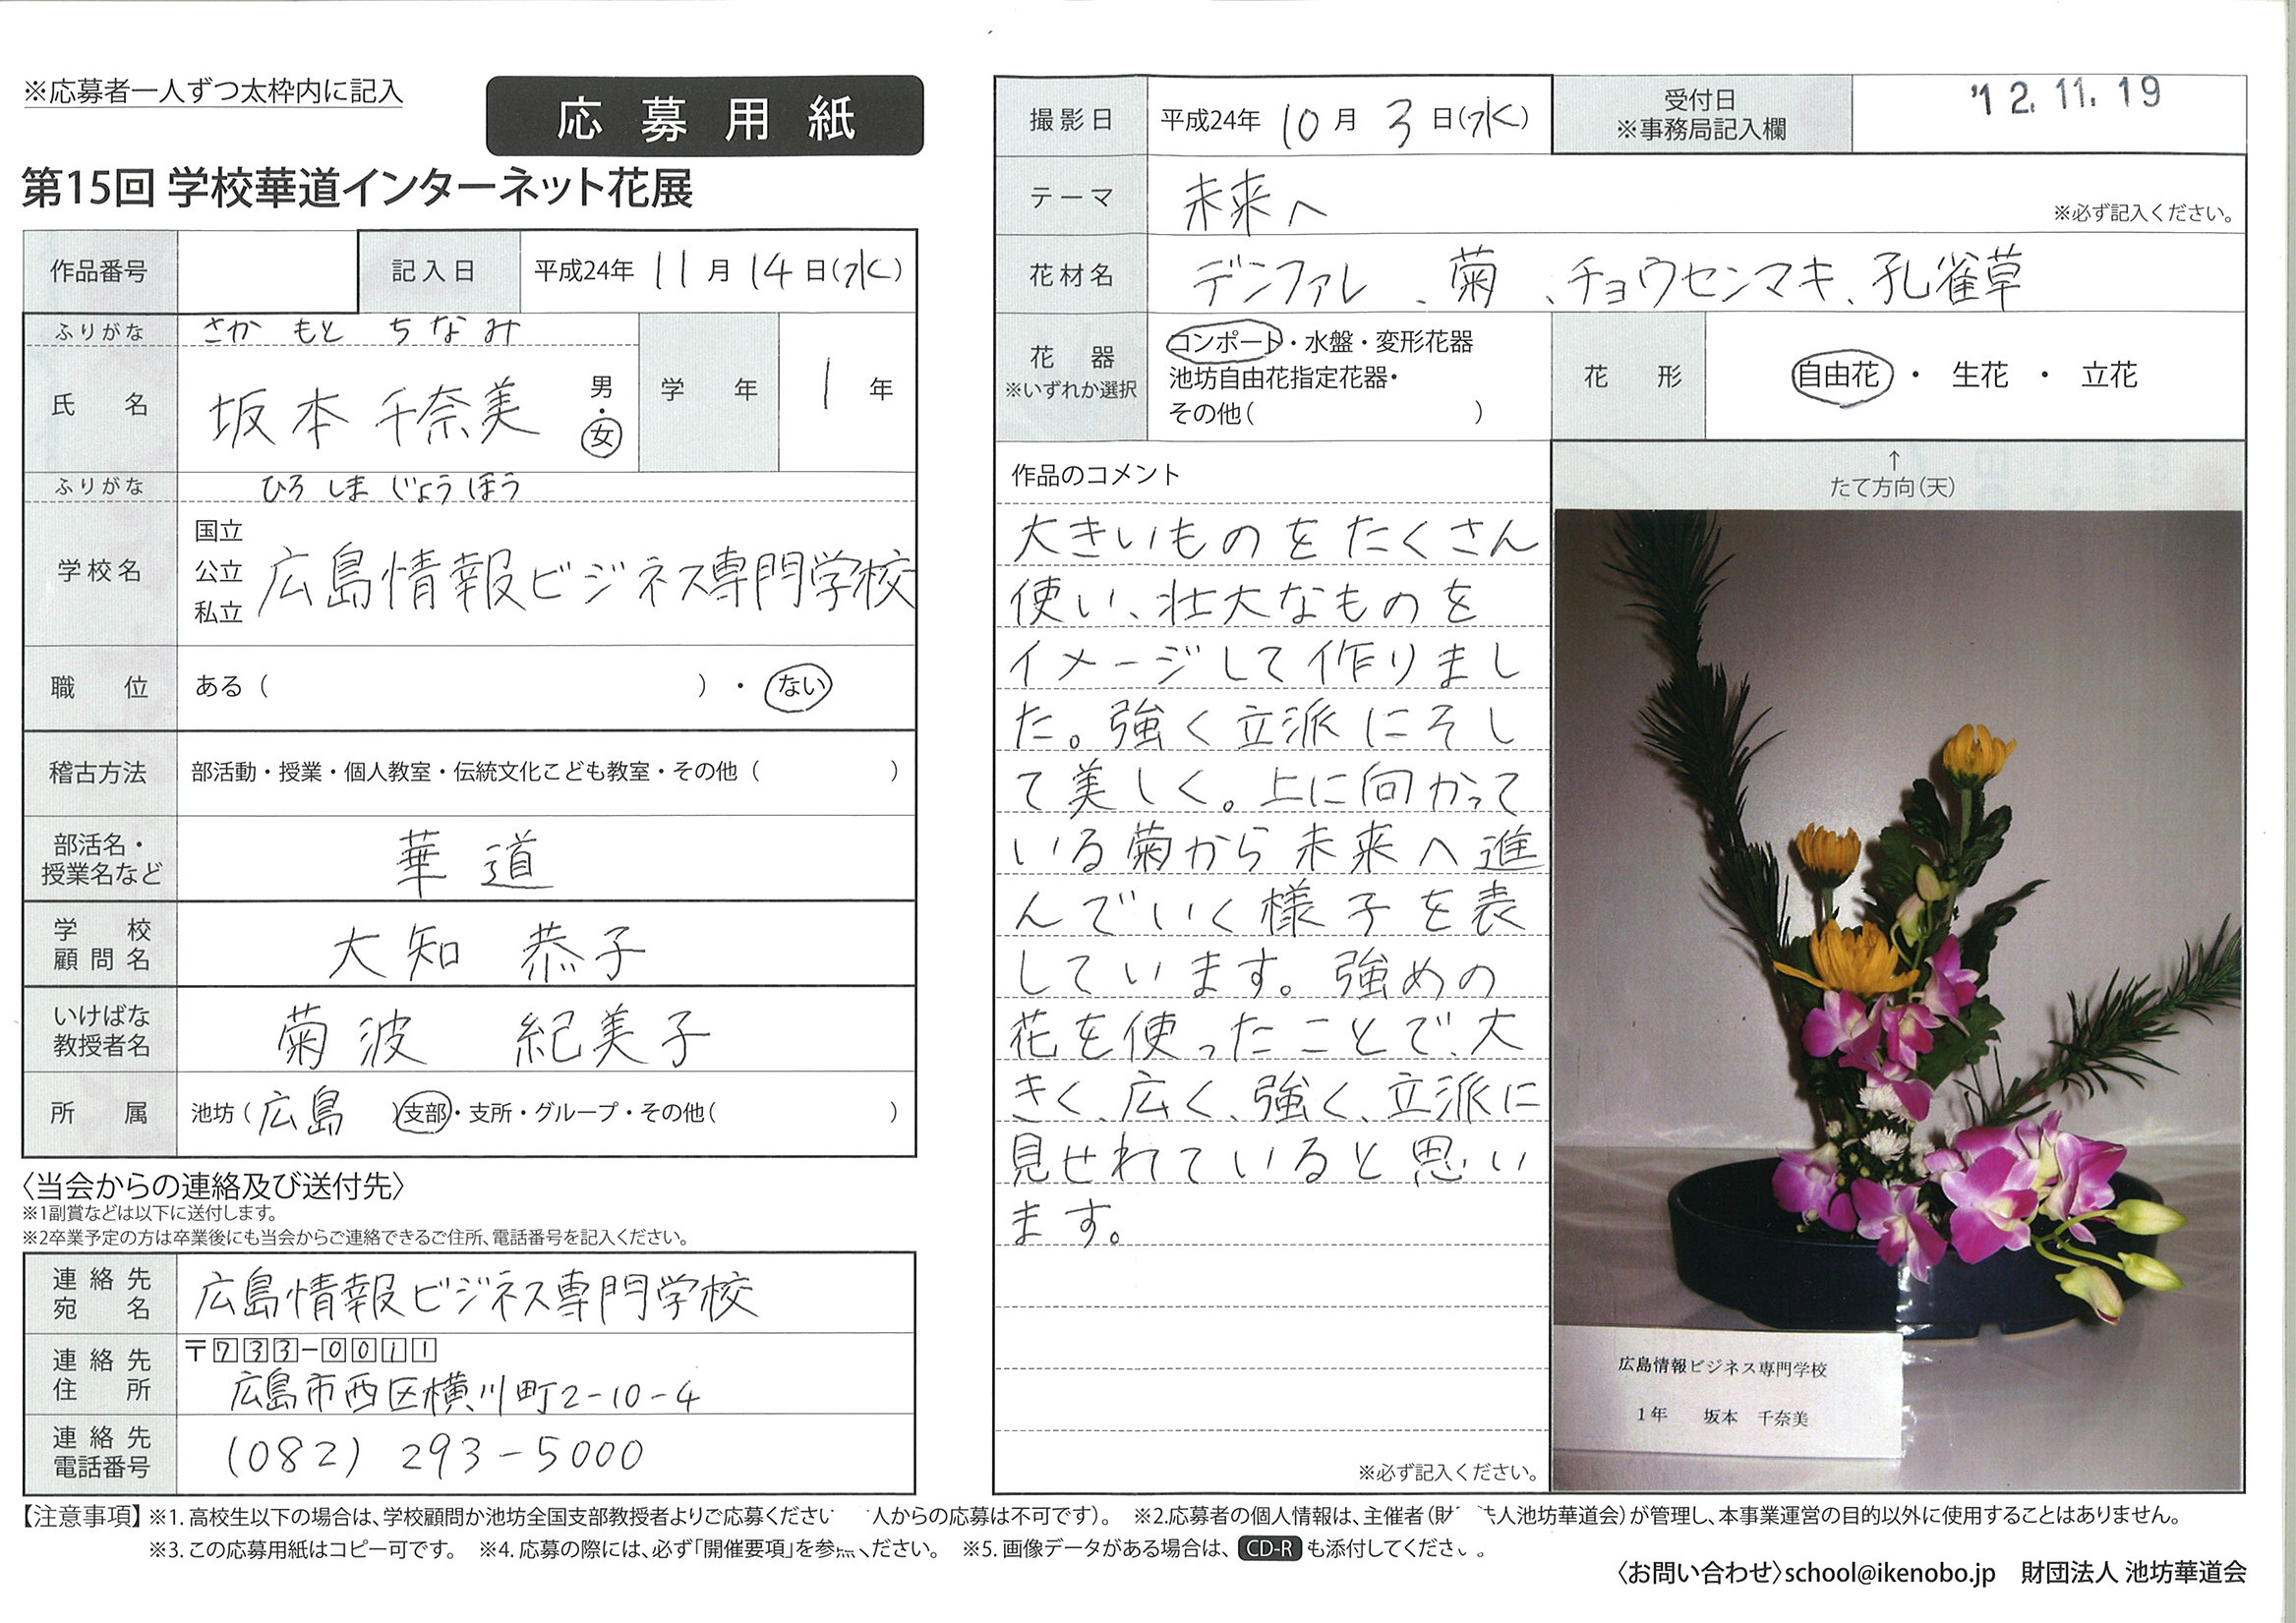 ※応募者一人ずつ太枠内に記入
応募用紙
第15回 学校華道インターネット花展
作品番号
記入日 平成24年 11月 14日(水)
ふりがな さか もと ち な み
氏名 坂本 千奈美 男・女
学年 1年
ふりがな ひろ しま じょう ほう
学校名 国立 公立 私立 広島情報ビジネス専門学校
職位 ある( )・ない
稽古方法 部活動・授業・個人教室・伝統文化こども教室・その他( )
部活名・授業名など 華道
学校顧問名 大知 恭子
いけばな教授者名 菊波 紀美子
所属 池坊(広島 )支部・支所・グループ・その他( )
〈当会からの連絡及び送付先〉
※1副賞などは以下に送付します。
※2卒業予定の方は卒業後にも当会からご連絡できるご住所、電話番号を記入ください。
連絡先宛名 広島情報ビジネス専門学校
連絡先住所 〒733-0011
広島市西区横川町2-10-4
連絡先電話番号 (082) 293-5000
撮影日 平成24年 10月 3日(水)
受付日
※事務局記入欄
'12.11.19
テーマ 未来へ
※必ず記入ください。
花材名 デンファレ、菊、チョウセンマキ、孔雀草
花器
※いずれか選択
コンポート・水盤・変形花器
池坊自由花指定花器・
その他( )
花形 自由花・生花・立花
作品のコメント
大きいものをたくさん
使い、壮大なものを
イメージして作りまし
た。強く立派にそし
て美しく。上に向かって
いる菊から未来へ進
んでいく様子を表
しています。強めの
花を使ったことで、大
きく、広く、強く、立派に
見せれていると思い
ます。
※必ず記入ください。
↑
たて方向(天)
広島情報ビジネス専門学校
1年 坂本 千奈美
【注意事項】※1. 高校生以下の場合は、学校顧問か池坊全国支部教授者よりご応募くださ 人からの応募は不可です)。 ※2.応募者の個人情報は、主催者(財 人池坊華道会)が管理し、本事業運営の目的以外に使用することはありません。
※3. この応募用紙はコピー可です。 ※4. 応募の際には、必ず「開催要項」を参 ください。 ※5. 画像データがある場合は、CD-Rも添付してくださ 。
〈お問い合わせ〉school@ikenobo.jp 財団法人 池坊華道会